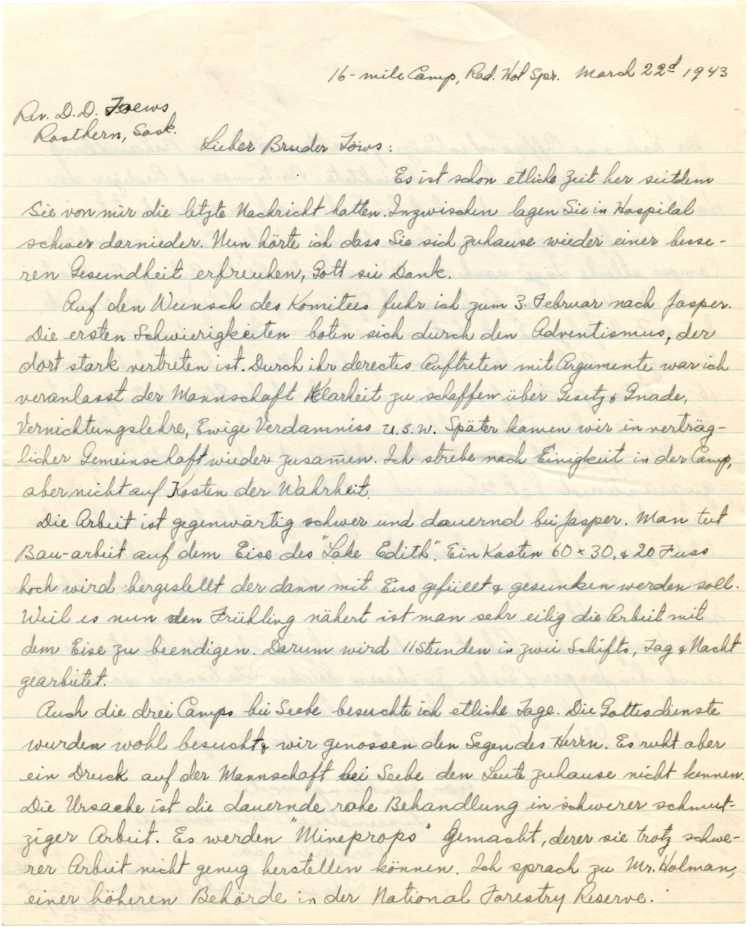 16-mile Camp, Rad. Hot Spr. March 22d 1943
Rev. D. D. Toews
Rosthern, Sask.
Lieber Bruder Töws:
Es ist schon etliche Zeit her seitdem
Sie von mir die letzte Nachricht hatten. Inzwischen lagen Sie in Hospital
schwer darnieder. Nun hörte ich dass Sie sich zuhause wieder einer besse-
ren Gesundheit erfreuhen, Gott sie Dank.
Auf den Wunsch des Komitees fuhr ich zum 3. Februar nach Jasper.
Die ersten Schwierigkeiten boten sich durch den Adventismus, der
dort stark vertreten ist. Durch ihr derectes Auftreten mit Argumente war ich
veranlasst der Mannschaft Klarheit zu schaffen über Gesetz & Gnade,
Vernichtungslehre, Ewige Verdamniss u.s.w. Später kamen wir in verträg-
licher Gemeinschaft wieder zusam̄en. Ich strebe nach Einigkeit in der Camp,
aber nicht auf Kosten der Wahrheit.
Die Arbeit ist gegenwärtig schwer und dauernd bei Jasper. Man tut
Bau-arbeit auf dem Eise des "Lake Edith". Ein Kasten 60 × 30, & 20 Fuss
hoch wird hergestellt der dann mit Eiss gefüllt & gesunken werden soll.
Weil es nun den Frühling nähert ist man sehr eilig die Arbeit mit
dem Eise zu beendigen. Darum wird 11 Stunden in zwei Schifts, Tag & Nacht
gearbeitet.
Auch die drei Camps bei Seebe besuchte ich etliche Tage. Die Gottesdienste
wurden wohl besucht & wir genossen den Segen des Herrn. Es ruht aber
ein Druck auf der Mannschaft bei Seebe den Leute zuhause nicht kennen.
Die Ursache ist die dauernde rohe Behandlung in schwerer schmut-
ziger Arbeit. Es werden "Mineprops" gemacht, derer sie trotz schwe-
rer Arbeit nicht genug herstellen können. Ich sprach zu Mr. Holman,
einer höheren Behörde in der National Forestry Reserve.